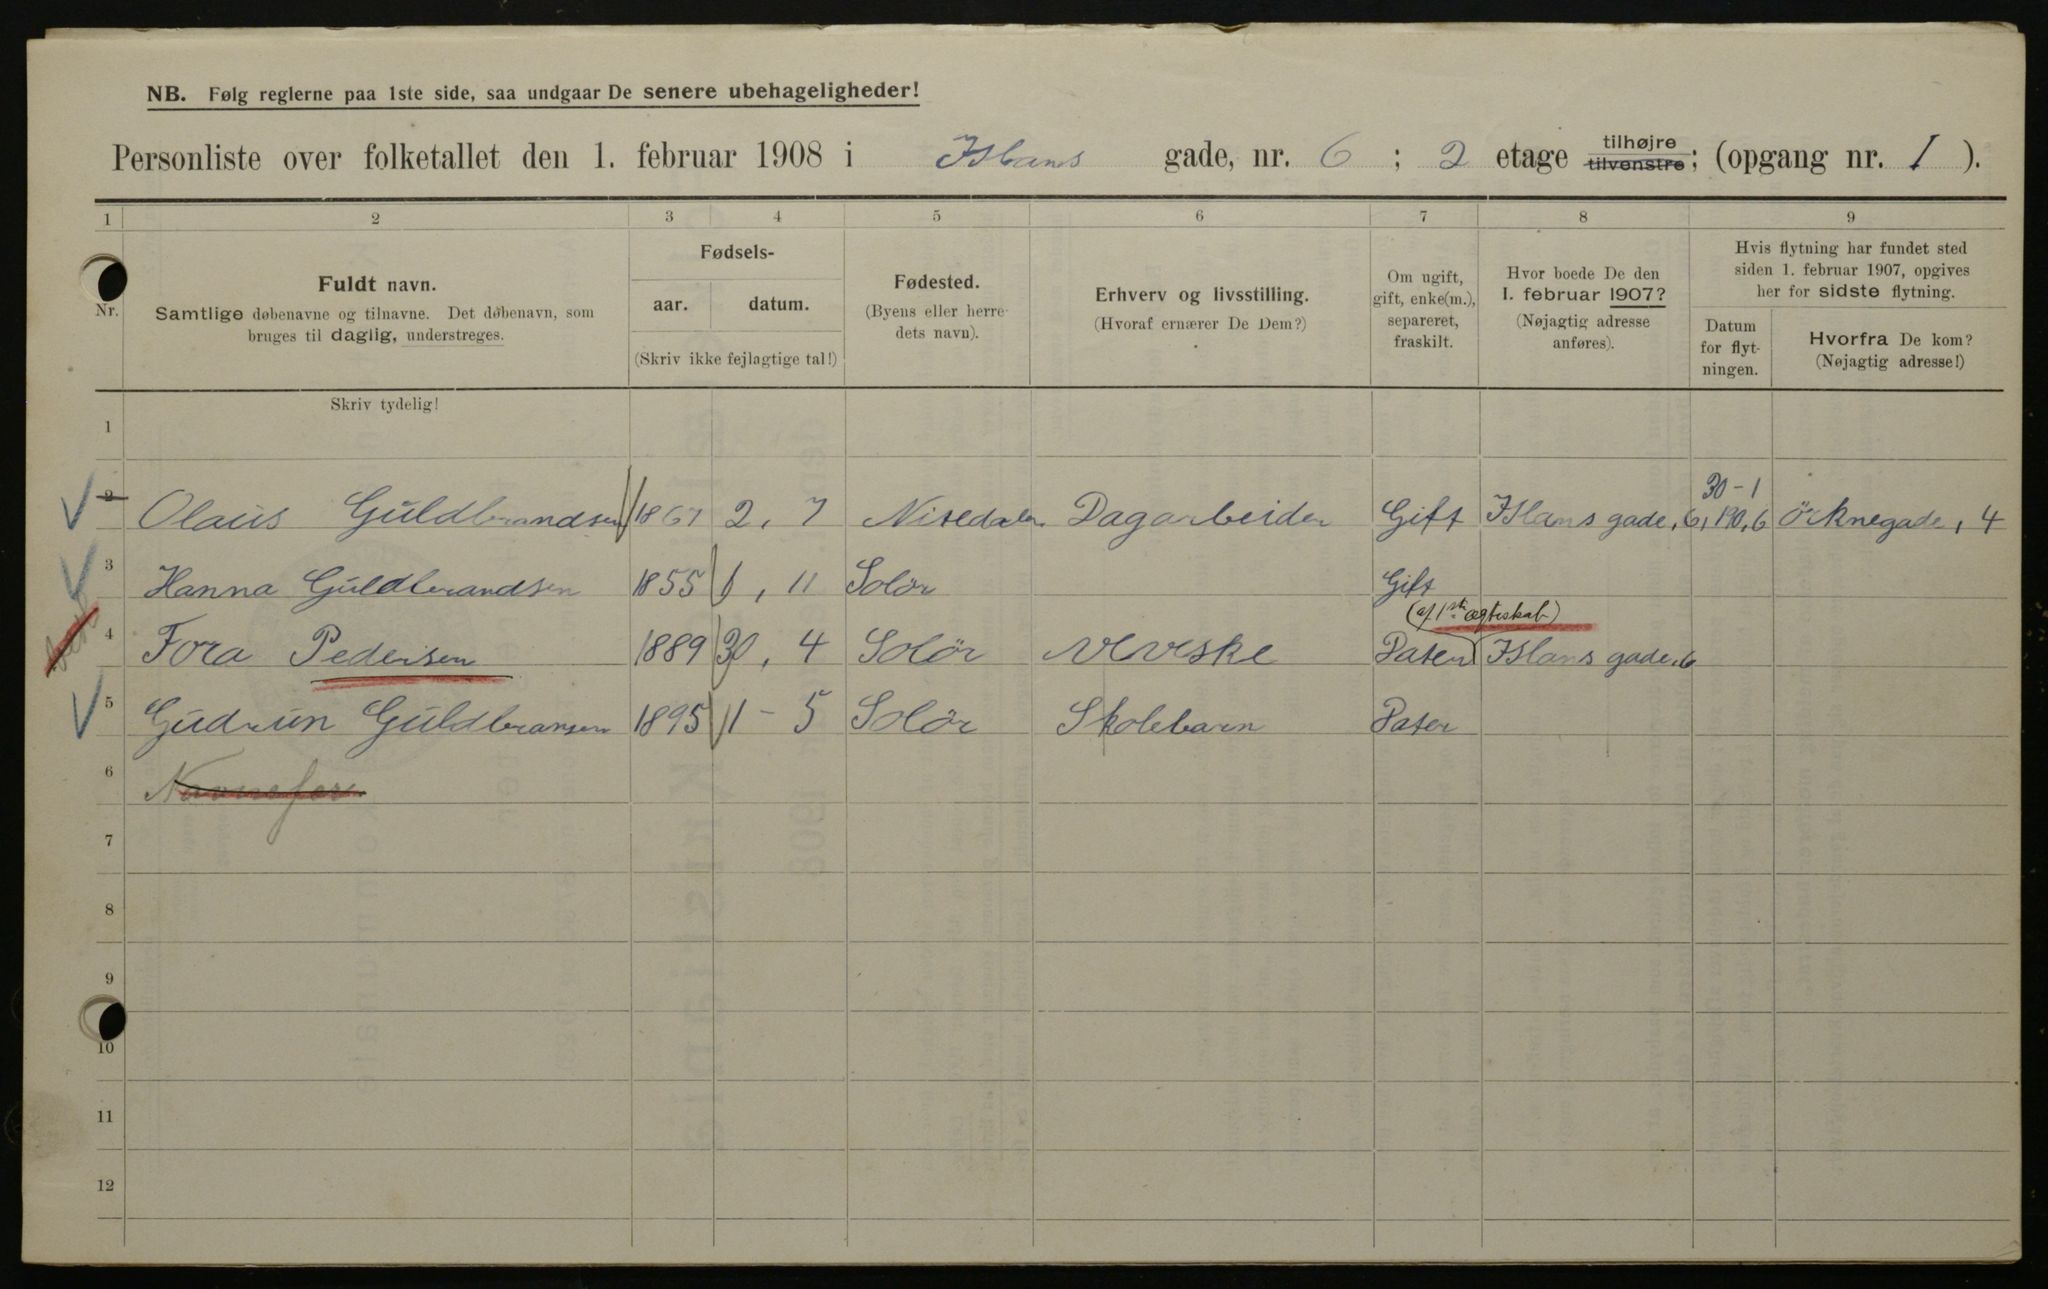 NB. Følg reglerne paa 1ste side, saa undgaar De senere ubehageligheder!
Personliste over folketallet den 1. februar 1908 i Islans gade, nr. 6 ; 2 etage tilhøjre tilvenstre; (opgang nr. 1 ).
1 2 3 4 5 6 7 8 9
Nr.
Fuldt navn.
Samtlige døbenavne og tilnavne. Det døbenavn, som
bruges til daglig, understreges.
Fødsels-
aar. datum.
(Skriv ikke fejlagtige tal!)
Fødested.
(Byens eller herre-
dets navn).
Erhverv og livsstilling.
(Hvoraf ernærer De Dem?)
Om ugift,
gift, enke(m.),
separeret,
fraskilt.
Hvor boede De den
1. februar 1907?
(Nøjagtig adresse
anføres).
Hvis flytning har fundet sted
siden 1. februar 1907, opgives
her for sidste flytning.
Datum
for flyt-
ningen.
Hvorfra De kom?
(Nøjagtig adresse!)
Skriv tydelig!
1
30-1
2 Olaus Guldbrandsen 1867 2, 7 Nitedalen Dagarbeider Gift Islans gade, 6, 190,6 Örknegade, 4
3 Hanna Guldbrandsen 1855 6, 11 Solör Gift
(af 1ste ægteskab)
4 Tora Pedersen 1889 30, 4 Solör Veverske Pater Islans gade, 6
5 Gudrun Guldbransen 1895 11 - 5 Solör Skolebarn Pater
6
7
8
9
10
11
12